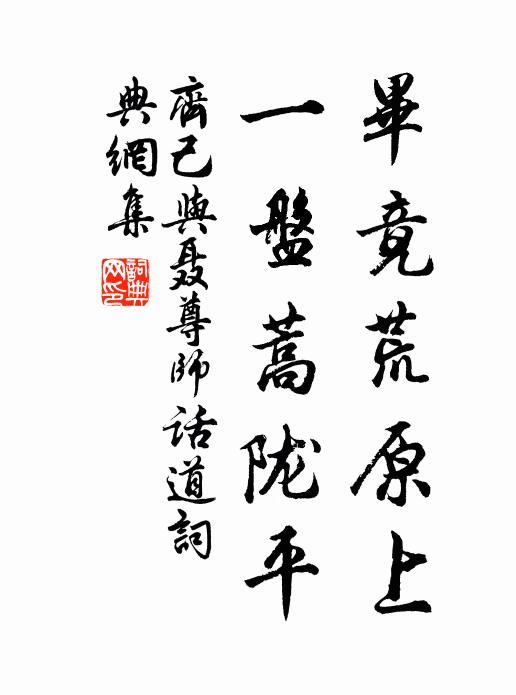 畢竟荒原上
一盤蒿陇平
齊己與聶尊師話道詞
典網集
詞典网印